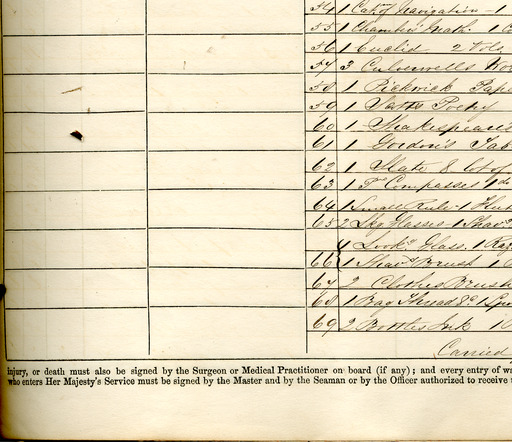 54 1 Cat of Navigation - 1
55 1 Chambers Math. 1
56 1 Euclid 2 Vols
57 3 Culverwells
58 1 Pickwick Pape
59 1 Poetry
60 1 Shakespeare's
61 1 Gordon's Tab
62 1 Slate & lot of
63 1 Pr Compasses 1 do
64 1 Small Rule - 1
65 2 Lkg Glasses 1 Shavg
4 Lookg Glass. 1 Raz
66 1 Shavg Brush 1
67 2 Clothes Brush
68 1 Bag Thread &c 1
69 2 Bottles Ink
Carried
injury, or death must also be signed by the Surgeon or Medical Practitioner on board (if any); and every entry of wa
who enters Her Majesty's Service must be signed by the Master and by the Seaman or by the Officer authorized to receive